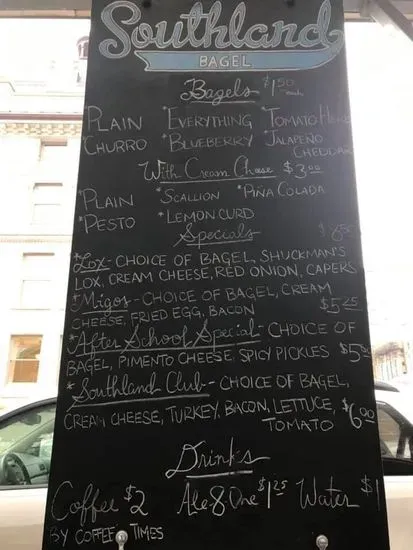 Southland
BAGEL
Bagels $1.50 each
*PLAIN *EVERYTHING *TOMATO HERB
CHURRO *BLUEBERRY *JALAPEÑO CHEDDAR
With Cream Cheese $3.00
*PLAIN *SCALLION *PIÑA COLADA
*PESTO *LEMON CURD
Specials
*Lox - CHOICE OF BAGEL, SHUCKMAN'S
LOX, CREAM CHEESE, RED ONION, CAPERS
*Migos - CHOICE OF BAGEL, CREAM
CHEESE, FRIED EGG, BACON $5.25
*After School Special - CHOICE OF
BAGEL, PIMENTO CHEESE, SPICY PICKLES $5.00
*Southland Club - CHOICE OF BAGEL,
CREAM CHEESE, TURKEY, BACON, LETTUCE, $6.00
TOMATO
Drinks
Coffee $2 Ale 8 One $1.25 Water $1
BY COFFEE TIMES